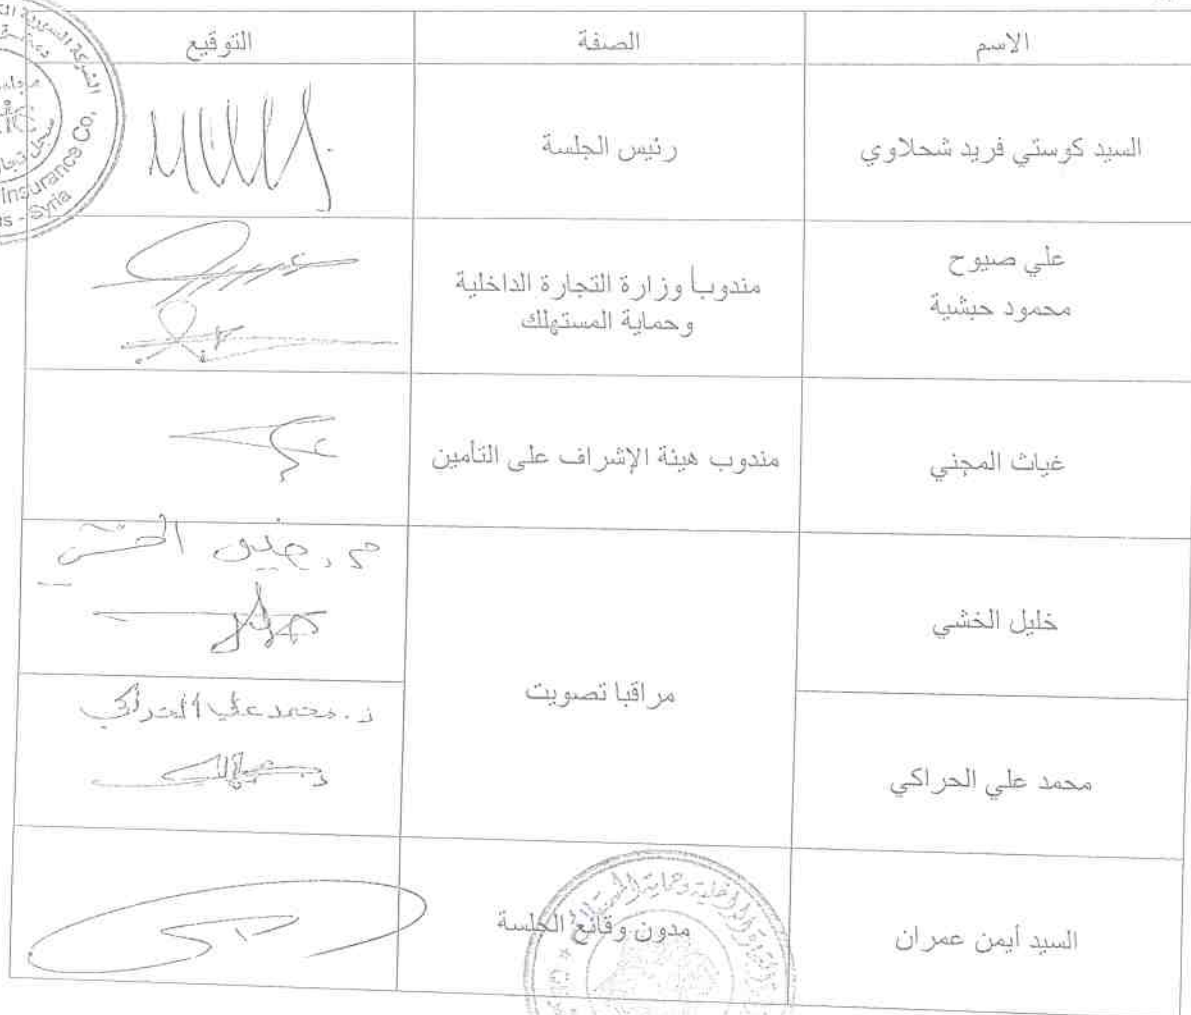 الاسم
الصفة
التوقيع
السيد كوستي فريد شحلاوي
رئيس الجلسة
علي صيوح
محمود حبشية
مندوبأ وزارة التجارة الداخلية
وحماية المستهلك
غياث المجني
مندوب هيئة الإشراف على التأمين
خليل الخشي
مراقبا تصويت
محمد علي الحراكي
د. محمد علي الحراكي
السيد أيمن عمران
مدون وقائع الجلسة
الشركة السورية
Insurance Co.
- Syria